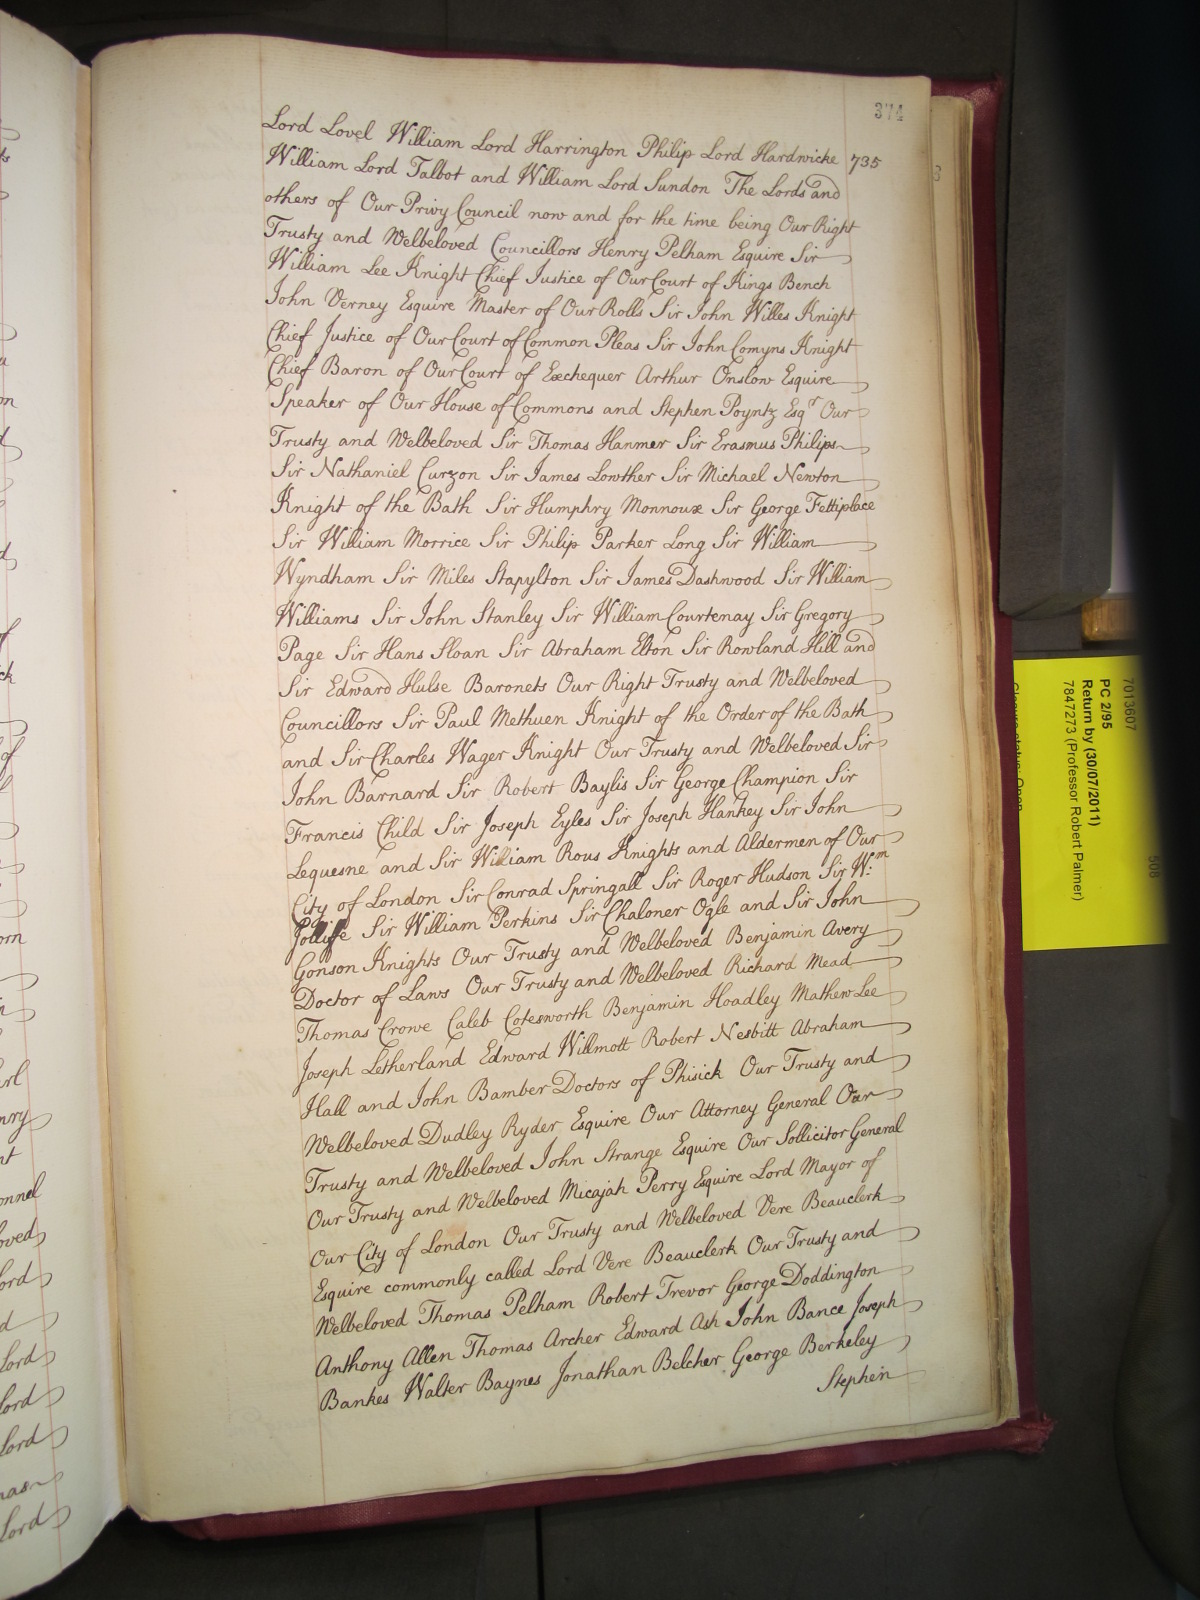 374
735
Lord Lovel William Lord Harrington Philip Lord Hardwicke
William Lord Talbot and William Lord Sundon The Lords and
others of Our Privy Council now and for the time being Our Right
Trusty and Welbeloved Councillors Henry Pelham Esquire Sir
William Lee Knight Chief Justice of Our Court of Kings Bench
John Verney Esquire Master of Our Rolls Sir John Willes Knight
Chief Justice of Our Court of Common Pleas Sir John Comyns Knight
Chief Baron of Our Court of Exchequer Arthur Onslow Esquire
Speaker of Our House of Commons and Stephen Poyntz Esqr Our
Trusty and Welbeloved Sir Thomas Hanmer Sir Erasmus Philips
Sir Nathaniel Curzon Sir James Lowther Sir Michael Newton
Knight of the Bath Sir Humphry Monnoux Sir George Fettiplace
Sir William Morrice Sir Philip Parker Long Sir William
Wyndham Sir Miles Stapylton Sir James Dashwood Sir William
Williams Sir John Stanley Sir William Courtenay Sir Gregory
Page Sir Hans Sloan Sir Abraham Elton Sir Rowland Hill and
Sir Edward Hulse Baronets Our Right Trusty and Welbeloved
Councillors Sir Paul Methuen Knight of the Order of the Bath
and Sir Charles Wager Knight Our Trusty and Welbeloved Sir
John Barnard Sir Robert Baylis Sir George Champion Sir
Francis Child Sir Joseph Eyles Sir Joseph Hankey Sir John
Lequesne and Sir William Rous Knights and Aldermen of Our
City of London Sir Conrad Springall Sir Roger Hudson Sir Wm
Jolliffe Sir William Perkins Sir Chaloner Ogle and Sir John
Gonson Knights Our Trusty and Welbeloved Benjamin Avery
Doctor of Laws Our Trusty and Welbeloved Richard Mead
Thomas Crowe Caleb Cotesworth Benjamin Hoadley Mathew Lee
Joseph Letherland Edward Willmott Robert Nesbitt Abraham
Hall and John Bamber Doctors of Phisick Our Trusty and
Welbeloved Dudley Ryder Esquire Our Attorney General Our
Trusty and Welbeloved John Strange Esquire Our Sollicitor General
Our Trusty and Welbeloved Micajah Perry Esquire Lord Mayor of
Our City of London Our Trusty and Welbeloved Vere Beauclerk
Esquire commonly called Lord Vere Beauclerk Our Trusty and
Welbeloved Thomas Pelham Robert Trevor George Doddington
Anthony Allen Thomas Archer Edward Ash John Bance Joseph
Bankes Walter Baynes Jonathan Belcher George Berkeley
Stephen
7013607
PC 2/95
Return by (30/07/2011)
7847273 (Professor Robert Palmer)
Closure status: Open
508